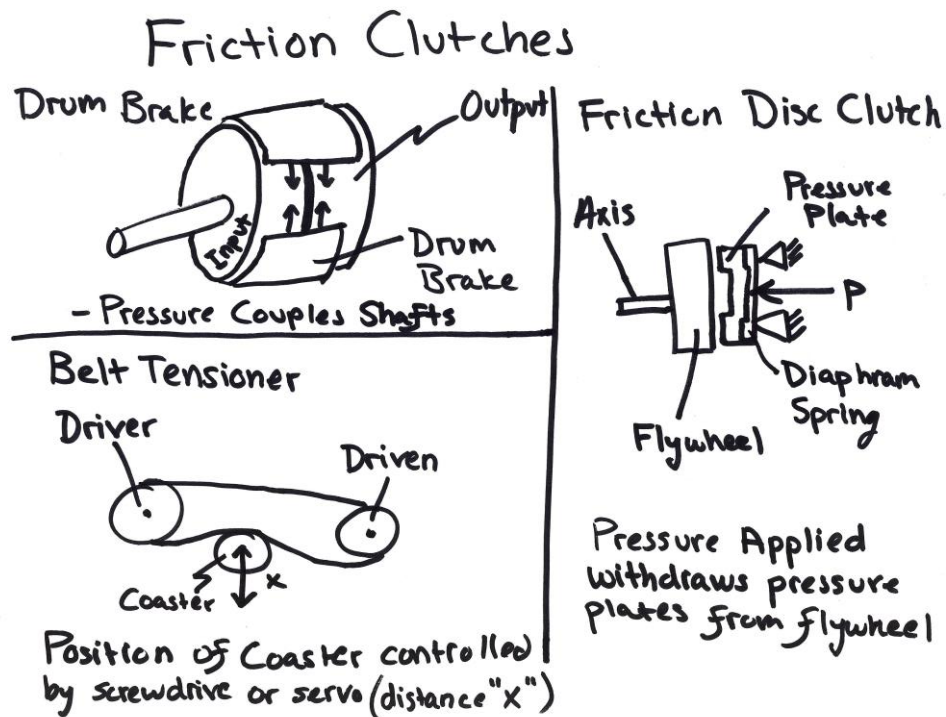 Friction Clutches
Drum Brake
Output
Input
Drum
Brake
- Pressure Couples Shafts
Belt Tensioner
Driver
Driven
Coaster
x
Position of Coaster controlled
by screwdrive or servo (distance "x")
Friction Disc Clutch
Pressure
Plate
Axis
P
Diaphram
Spring
Flywheel
Pressure Applied
withdraws pressure
plates from flywheel